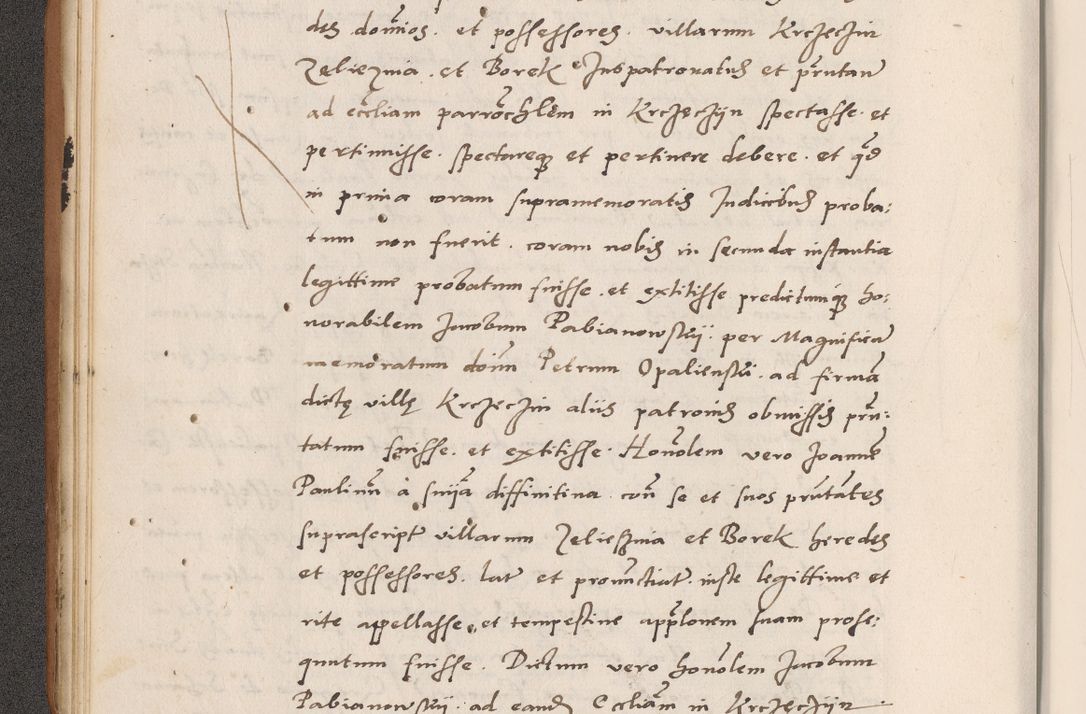 des dom̄ios. et possessores. villarum Krczeczin
Zelieznia. et Borek Juspatronatus et pn̄tan̄
ad eccl̄iam parroch̄lem in Krczeczyn spectasse. et
pertinuisse. spectareq₃ et pertinere debere. et qd̄
in prima coram supramemoratis Judicibus proba:
tum non fuerit. coram nobis in secunda instantia
legittime probatum fuisse. et extitisse predictumq₃ ho:
norabilem Jacobum Pabianowskij. per Magnificū
memoratum dom̄ Petrum Opalienski. ad firmā
dictę villę Krczeczin aliis patronis obmissis pn̄:
tatum fuisse. et extitisse. Hon̄olem vero Joannē
Paulinū a sn̄ia diffinitiua. con̄ se et suos pn̄tātes
suprascriptˀ villarum Zeliesznia et Borek heredes
et possessores. latˀ et pronūctiatˀ. iuste legittime et
rite appellasse. et tempestiue app̄lonem suam prose:
quutum fuisse. Dictum vero hon̄olem Jacobum
Pabianowskij. ad eand̄ Eccl̄iam in Krczeczyn.